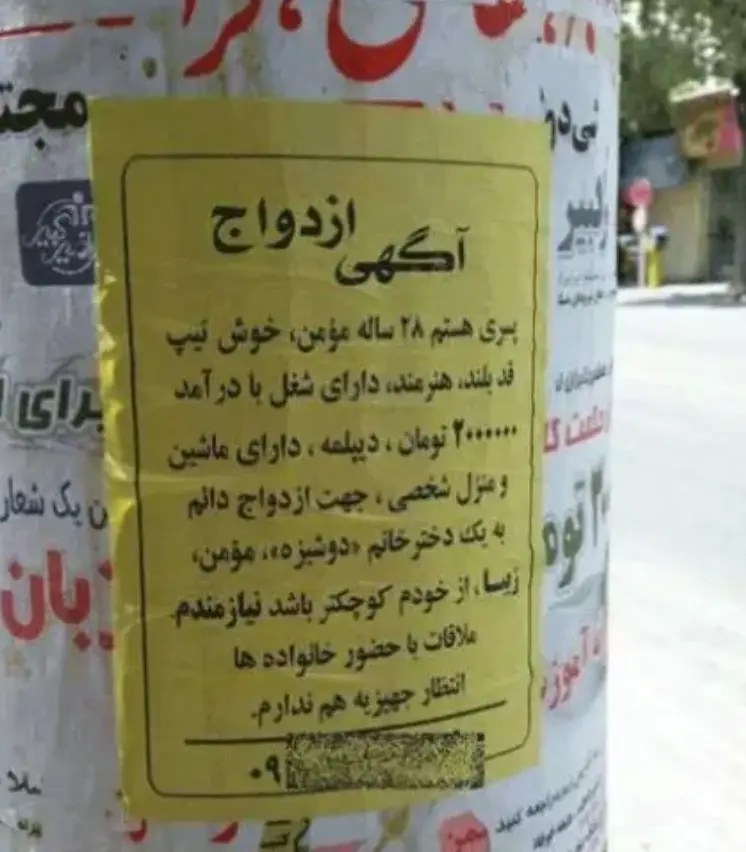 آگهی ازدواج
پسری هستم ۲۸ ساله مؤمن، خوش تیپ
قد بلند، هنرمند، دارای شغل با درآمد
۲۰۰۰۰۰۰ تومان، دیپلمه، دارای ماشین
و منزل شخصی، جهت ازدواج دائم
به یک دختر خانم «دوشیزه»، مؤمن،
زیبا، از خودم کوچکتر باشد نیازمندم.
ملاقات با حضور خانواده ها
انتظار جهیزیه هم ندارم.
۰۹
برای
ن یک شعار
زبان